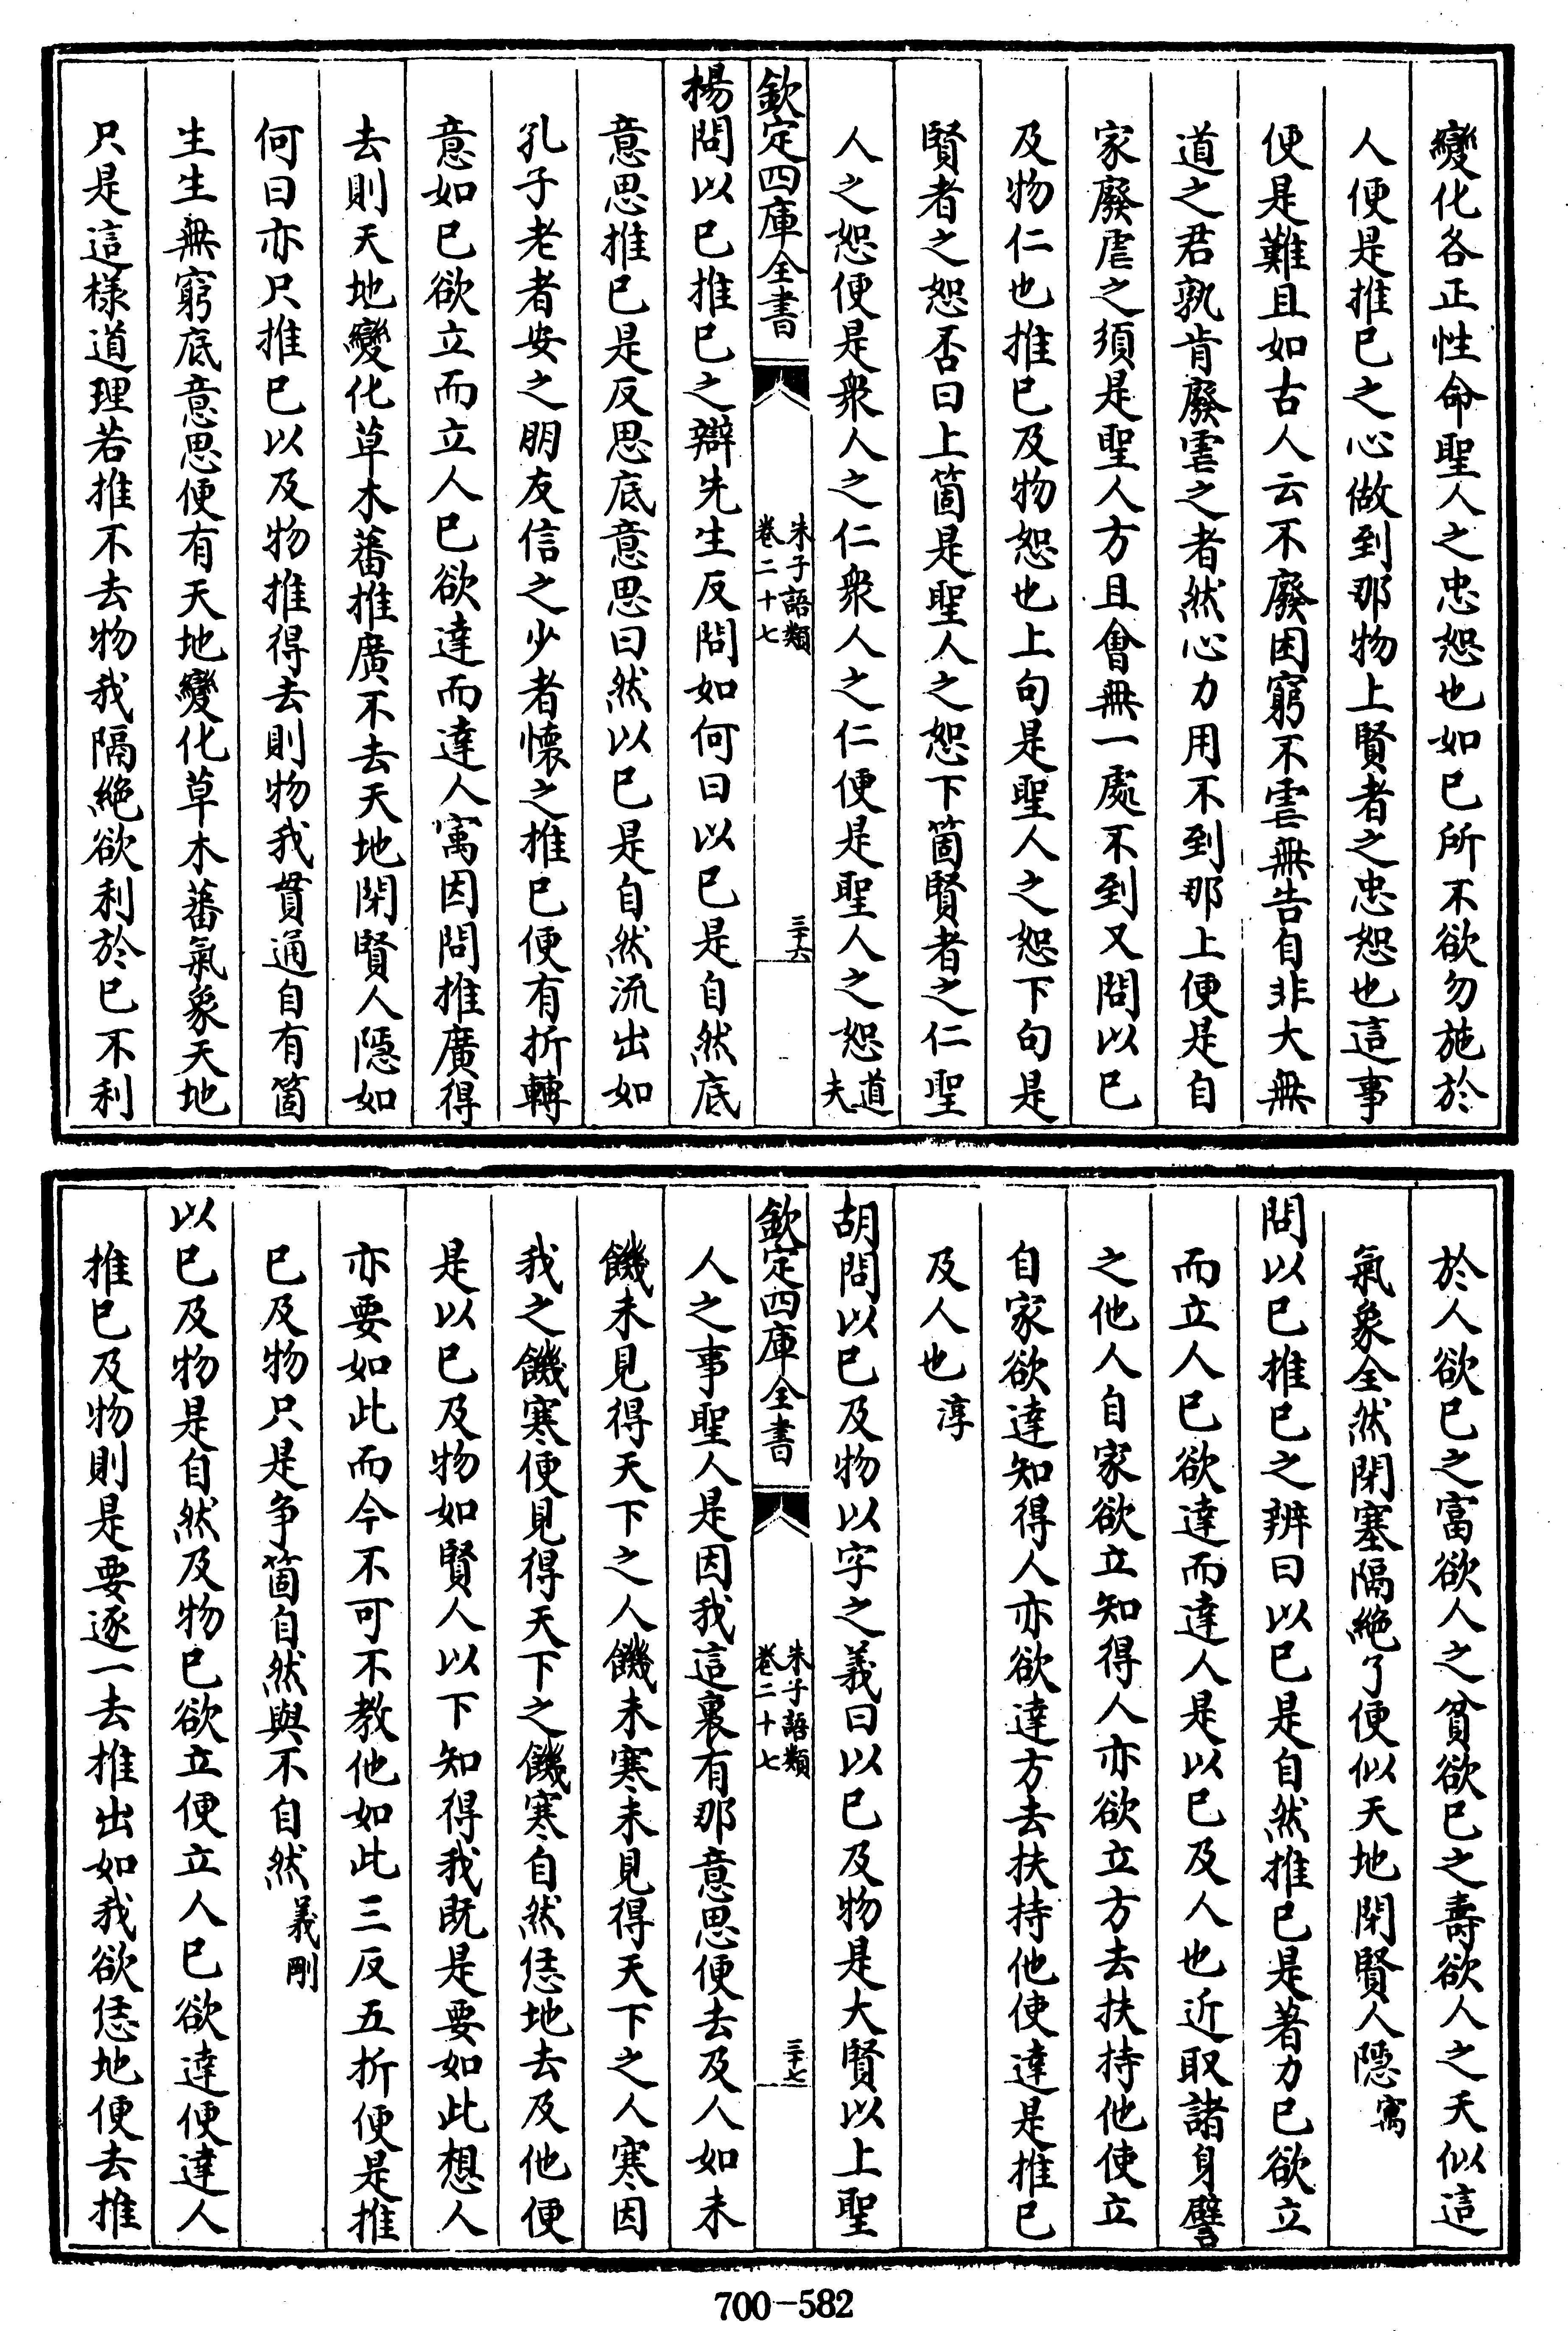 變化各正性命聖人之忠恕也如已所不欲勿施於
人便是推已之心做到那物上賢者之忠恕也這事
便是難且如古人云不廢困窮不虐無告自非大無
道之君孰肯廢虐之者然心力用不到那上便是自
家廢虐之須是聖人方且會無一處不到又問以已
及物仁也推已及物恕也上句是聖人之恕下句是
賢者之恕否曰上箇是聖人之恕下箇賢者之仁聖
人之恕便是衆人之仁衆人之仁便是聖人之恕道夫
欽定四庫全書
朱子語類
卷二十七
三十六
楊問以已推已之辯先生反問如何曰以已是自然底
意思推已是反思底意思曰然以已是自然流出如
孔子老者安之朋友信之少者懷之推已便有折轉
意如已欲立而立人已欲達而達人寓因問推廣得
去則天地變化草木蕃推廣不去天地閉賢人隱如
何曰亦只推已以及物推得去則物我貫通自有箇
生生無窮底意思便有天地變化草木蕃氣象天地
只是這樣道理若推不去物我隔絶欲利於已不利
於人欲已之富欲人之貧欲已之壽欲人之夭似這
氣象全然閉塞隔絶了便似天地閉賢人隱寓
問以已推已之辨曰以已是自然推已是著力已欲立
而立人已欲達而達人是以已及人也近取諸身譬
之他人自家欲立知得人亦欲立方去扶持他使立
自家欲達知得人亦欲達方去扶持他使達是推已
及人也淳
胡問以已及物以字之義曰以已及物是大賢以上聖
欽定四庫全書
朱子語類
卷二十七
三十七
人之事聖人是因我這裏有那意思便去及人如未
饑未見得天下之人饑未寒未見得天下之人寒因
我之饑寒便見得天下之饑寒自然恁地去及他便
是以已及物如賢人以下知得我既是要如此想人
亦要如此而今不可不教他如此三反五折便是推
已及物只是爭箇自然與不自然義剛
以已及物是自然及物已欲立便立人已欲達便達人
推已及物則是要逐一去推出如我欲恁地便去推
700-582